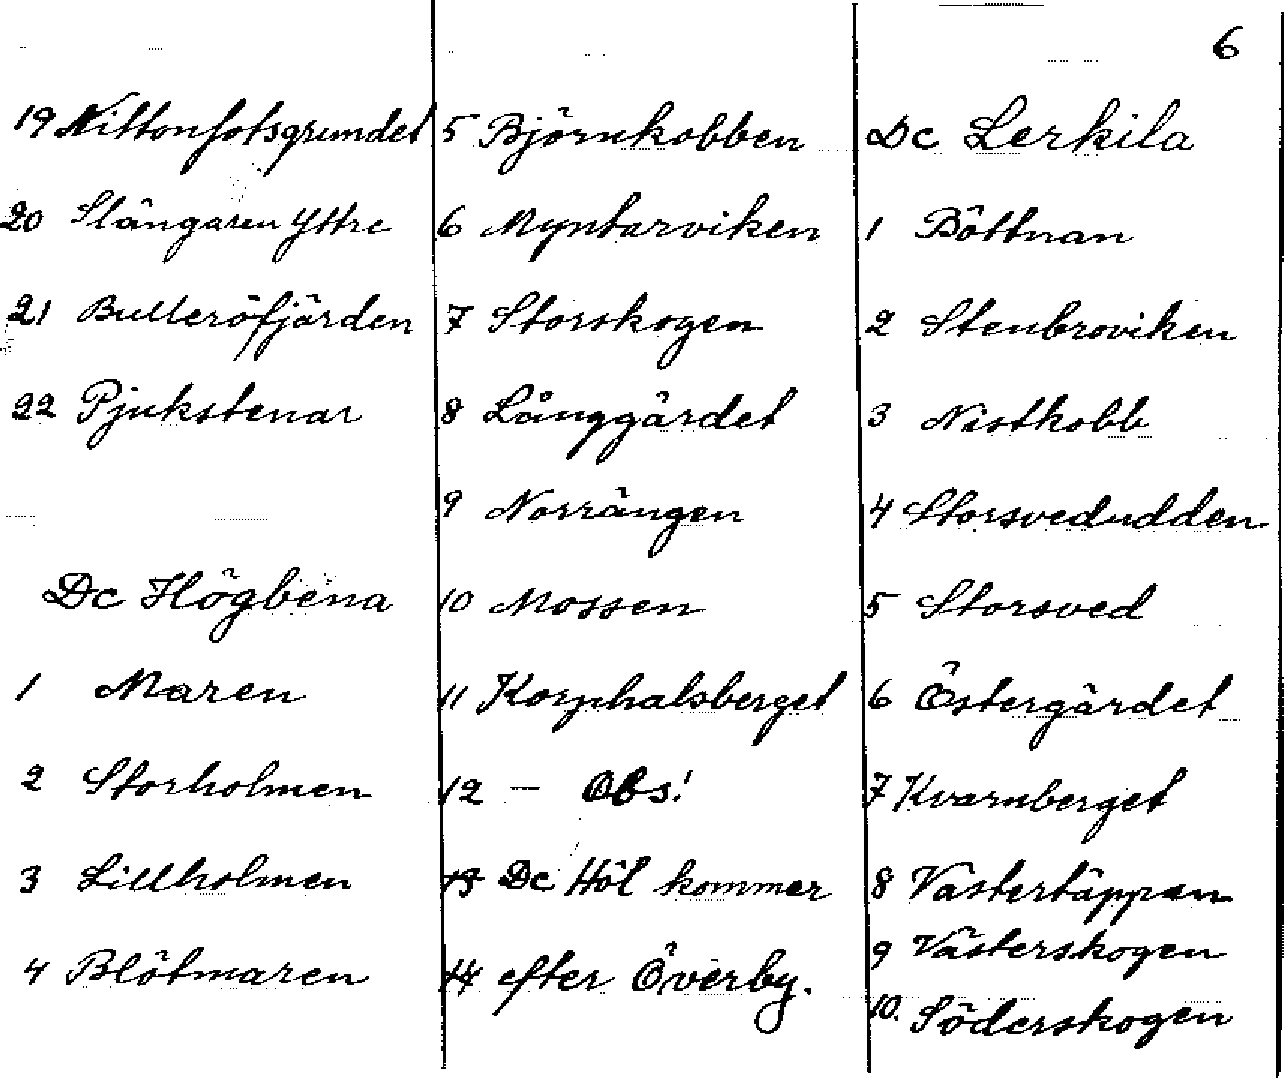 6
19 Nittonfotsgrundet
20 Stångaren Yttre
21 Bulleröfjärden
22 Pjukstenar
Dc Högbena
1 Maren
2 Storholmen
3 Lillholmen
4 Blötmaren
5 Björnkobben
6 Myntarviken
7 Storskogen
8 Långgärdet
9 Norrängen
10 Mossen
11 Korphalsberget
12 — Obs!
13 Dc Höl kommer
14 efter Överby.
Dc Lerkila
1 Böttnan
2 Stenbroviken
3 Nistkobb
4 Storsvedudden
5 Storsved
6 Östergärdet
7 Kvarnberget
8 Västertäppan
9 Västerskogen
10. Söderskogen